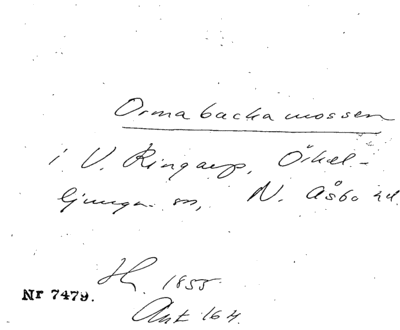 Ormabackamossen
i V. Ringarp, Örkel-
ljunga sn, N. Åsbo hd.
1855
Nr 7479.
Ant 164